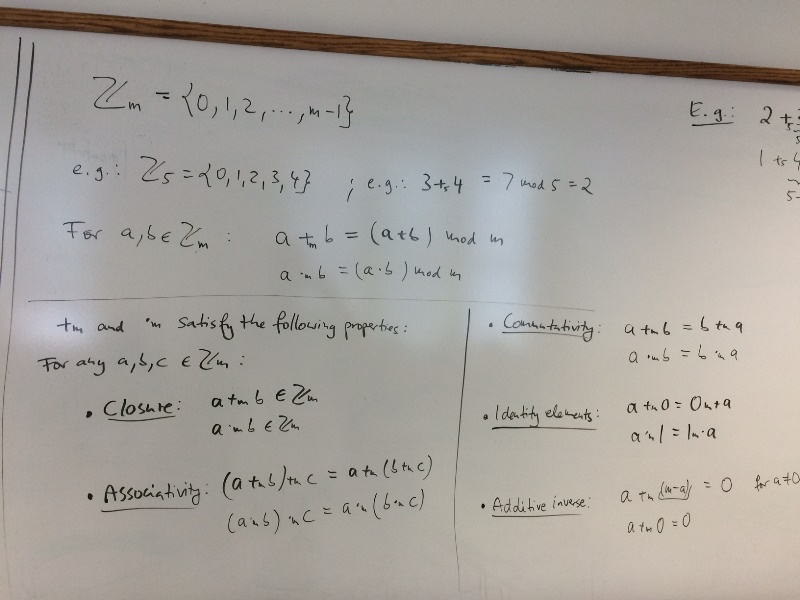 ℤm = {0, 1, 2, ..., m-1}
e.g.: ℤ5 = {0, 1, 2, 3, 4} ; e.g.: 3 +5 4 = 7 mod 5 = 2
For a, b ∈ ℤm : a +m b = (a+b) mod m
a ·m b = (a·b) mod m
E.g.: 2 +5
1 +5 4
5-
+m and ·m satisfy the following properties:
For any a, b, c ∈ ℤm :
• Closure: a +m b ∈ ℤm
a ·m b ∈ ℤm
• Associativity: (a +m b) +m c = a +m (b +m c)
(a ·m b) ·m c = a ·m (b ·m c)
• Commutativity: a +m b = b +m a
a ·m b = b ·m a
• Identity elements: a +m 0 = 0 m+ a
a ·m 1 = 1 m· a
• Additive inverse: a +m (m-a) = 0 for a≠0
a +m 0 = 0